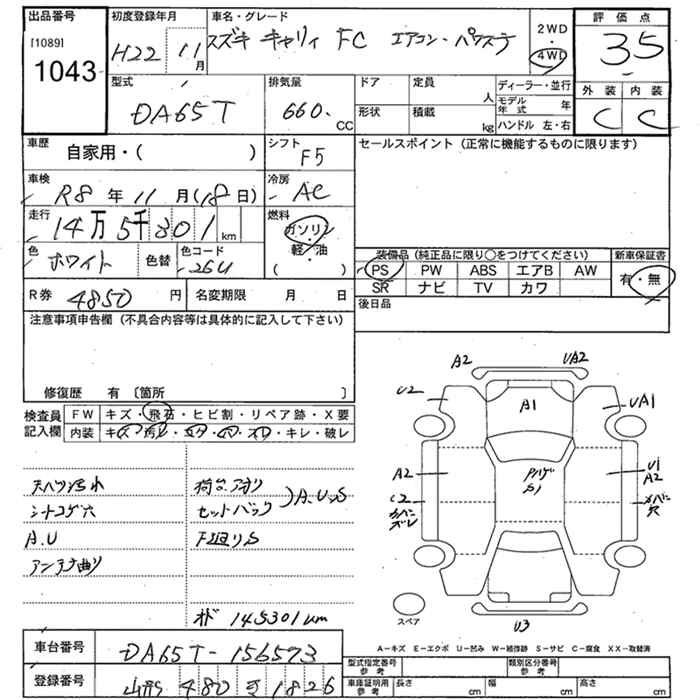 出品番号 初度登録年月 車名・グレード 2WD 評価点
[1089] H22 11月 スズキ キャリィ FC エアコン・パワステ 4WD 35
1043
型式 排気量 ドア 定員 人 ディーラー・並行 外装 内装
DA65T 660. CC 形状 積載 kg モデル年式 年 C C
ハンドル 左・右
車歴 自家用・( ) シフト F5 セールスポイント (正常に機能するものに限ります)
車検 R8年11月(18日) 冷房 AC
走行 14万5千301km 燃料 ガソリン
色 ホワイト 色替 色コード 26U 軽・油 ( ) 装備品 (純正品に限り○をつけてください) 新車保証書
PS PW ABS エアB AW 有・無
SR ナビ TV カワ
R券 4850円 名変期限 月 日 後日品
注意事項申告欄 (不具合内容等は具体的に記入して下さい)
修復歴 有 〔箇所 〕
検査員 FW キズ・飛石・ヒビ割・リペア跡・X要
記入欄 内装 キズ・汚レ・コゲ・穴・スレ・キレ・破レ
A2 UA2
U2 A1 UA1
A2 U1
A2
天ハツ汚れ 荷台アオリ
シートコゲ穴 セットバック A.U.S
A.U 下廻りS
アンテナ曲り
オド 145301km
スペア U3
A-キズ E-エクボ U-凹み W-補修跡 S-サビ C-腐食 XX-取替済
車台番号 DA65T-156573 型式指定番号 参考 類別区分番号 参考
登録番号 山形 480 き 1826 車庫証明用 参考 長さ cm 幅 cm 高さ cm